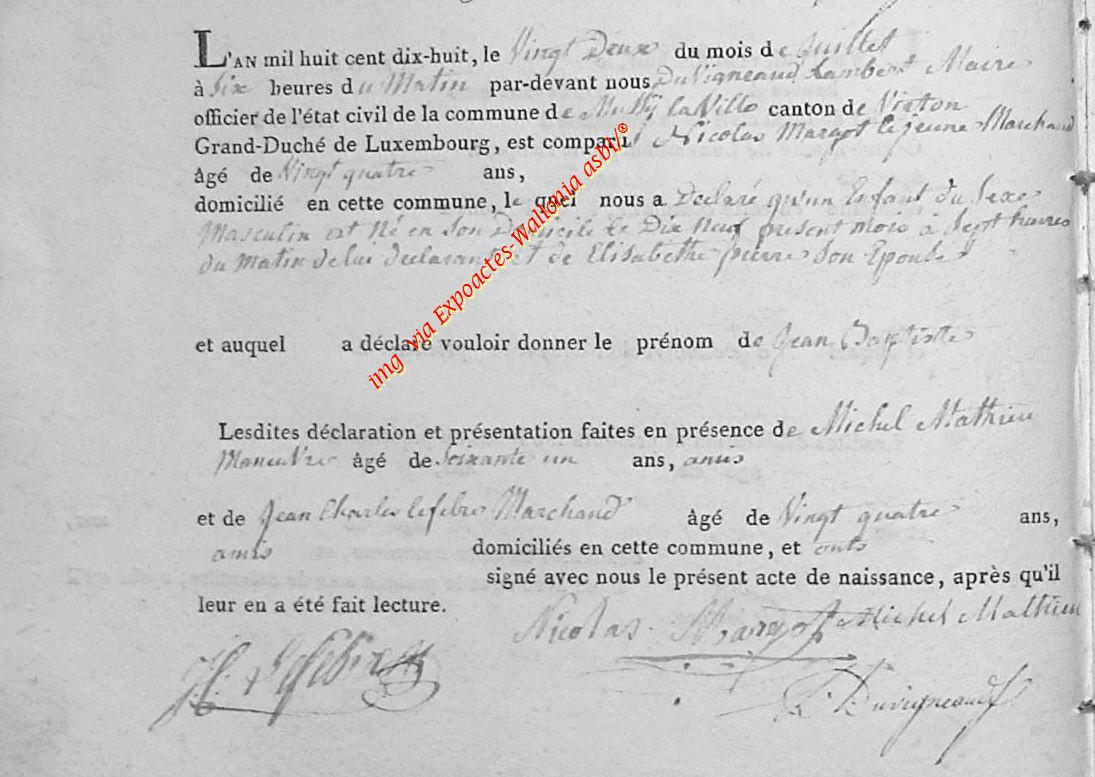 L'AN mil huit cent dix-huit, le Vingt Deux du mois de Juillet
à Six heures du Matin par-devant nous Duvigneaud Lambert Maire
officier de l'état civil de la commune de Mussy la Ville canton de Virton
Grand-Duché de Luxembourg, est comparu Nicolas Margot le jeune Marchand
âgé de Vingt quatre ans,
domicilié en cette commune, le quel nous a Declaré qu'un Enfant du Sexe
Masculin est Né en Son Domicile le Dix Neuf present mois à Sept heures
du Matin de lui declarant et de Elisabethe pierre Son Epouse
et auquel a déclaré vouloir donner le prénom de Jean Baptiste
Lesdites déclaration et présentation faites en présence de Michel Mathieu
Manuvre âgé de Soixante un ans, amis
et de Jean Charles lefebre Marchand âgé de Vingt quatre ans,
amis domiciliés en cette commune, et onts
signé avec nous le présent acte de naissance, après qu'il
leur en a été fait lecture.
Nicolas Margot Michel Mathieu
Lefebre
Duvigneaud
img via Expoactes-Wallonia asbl/®